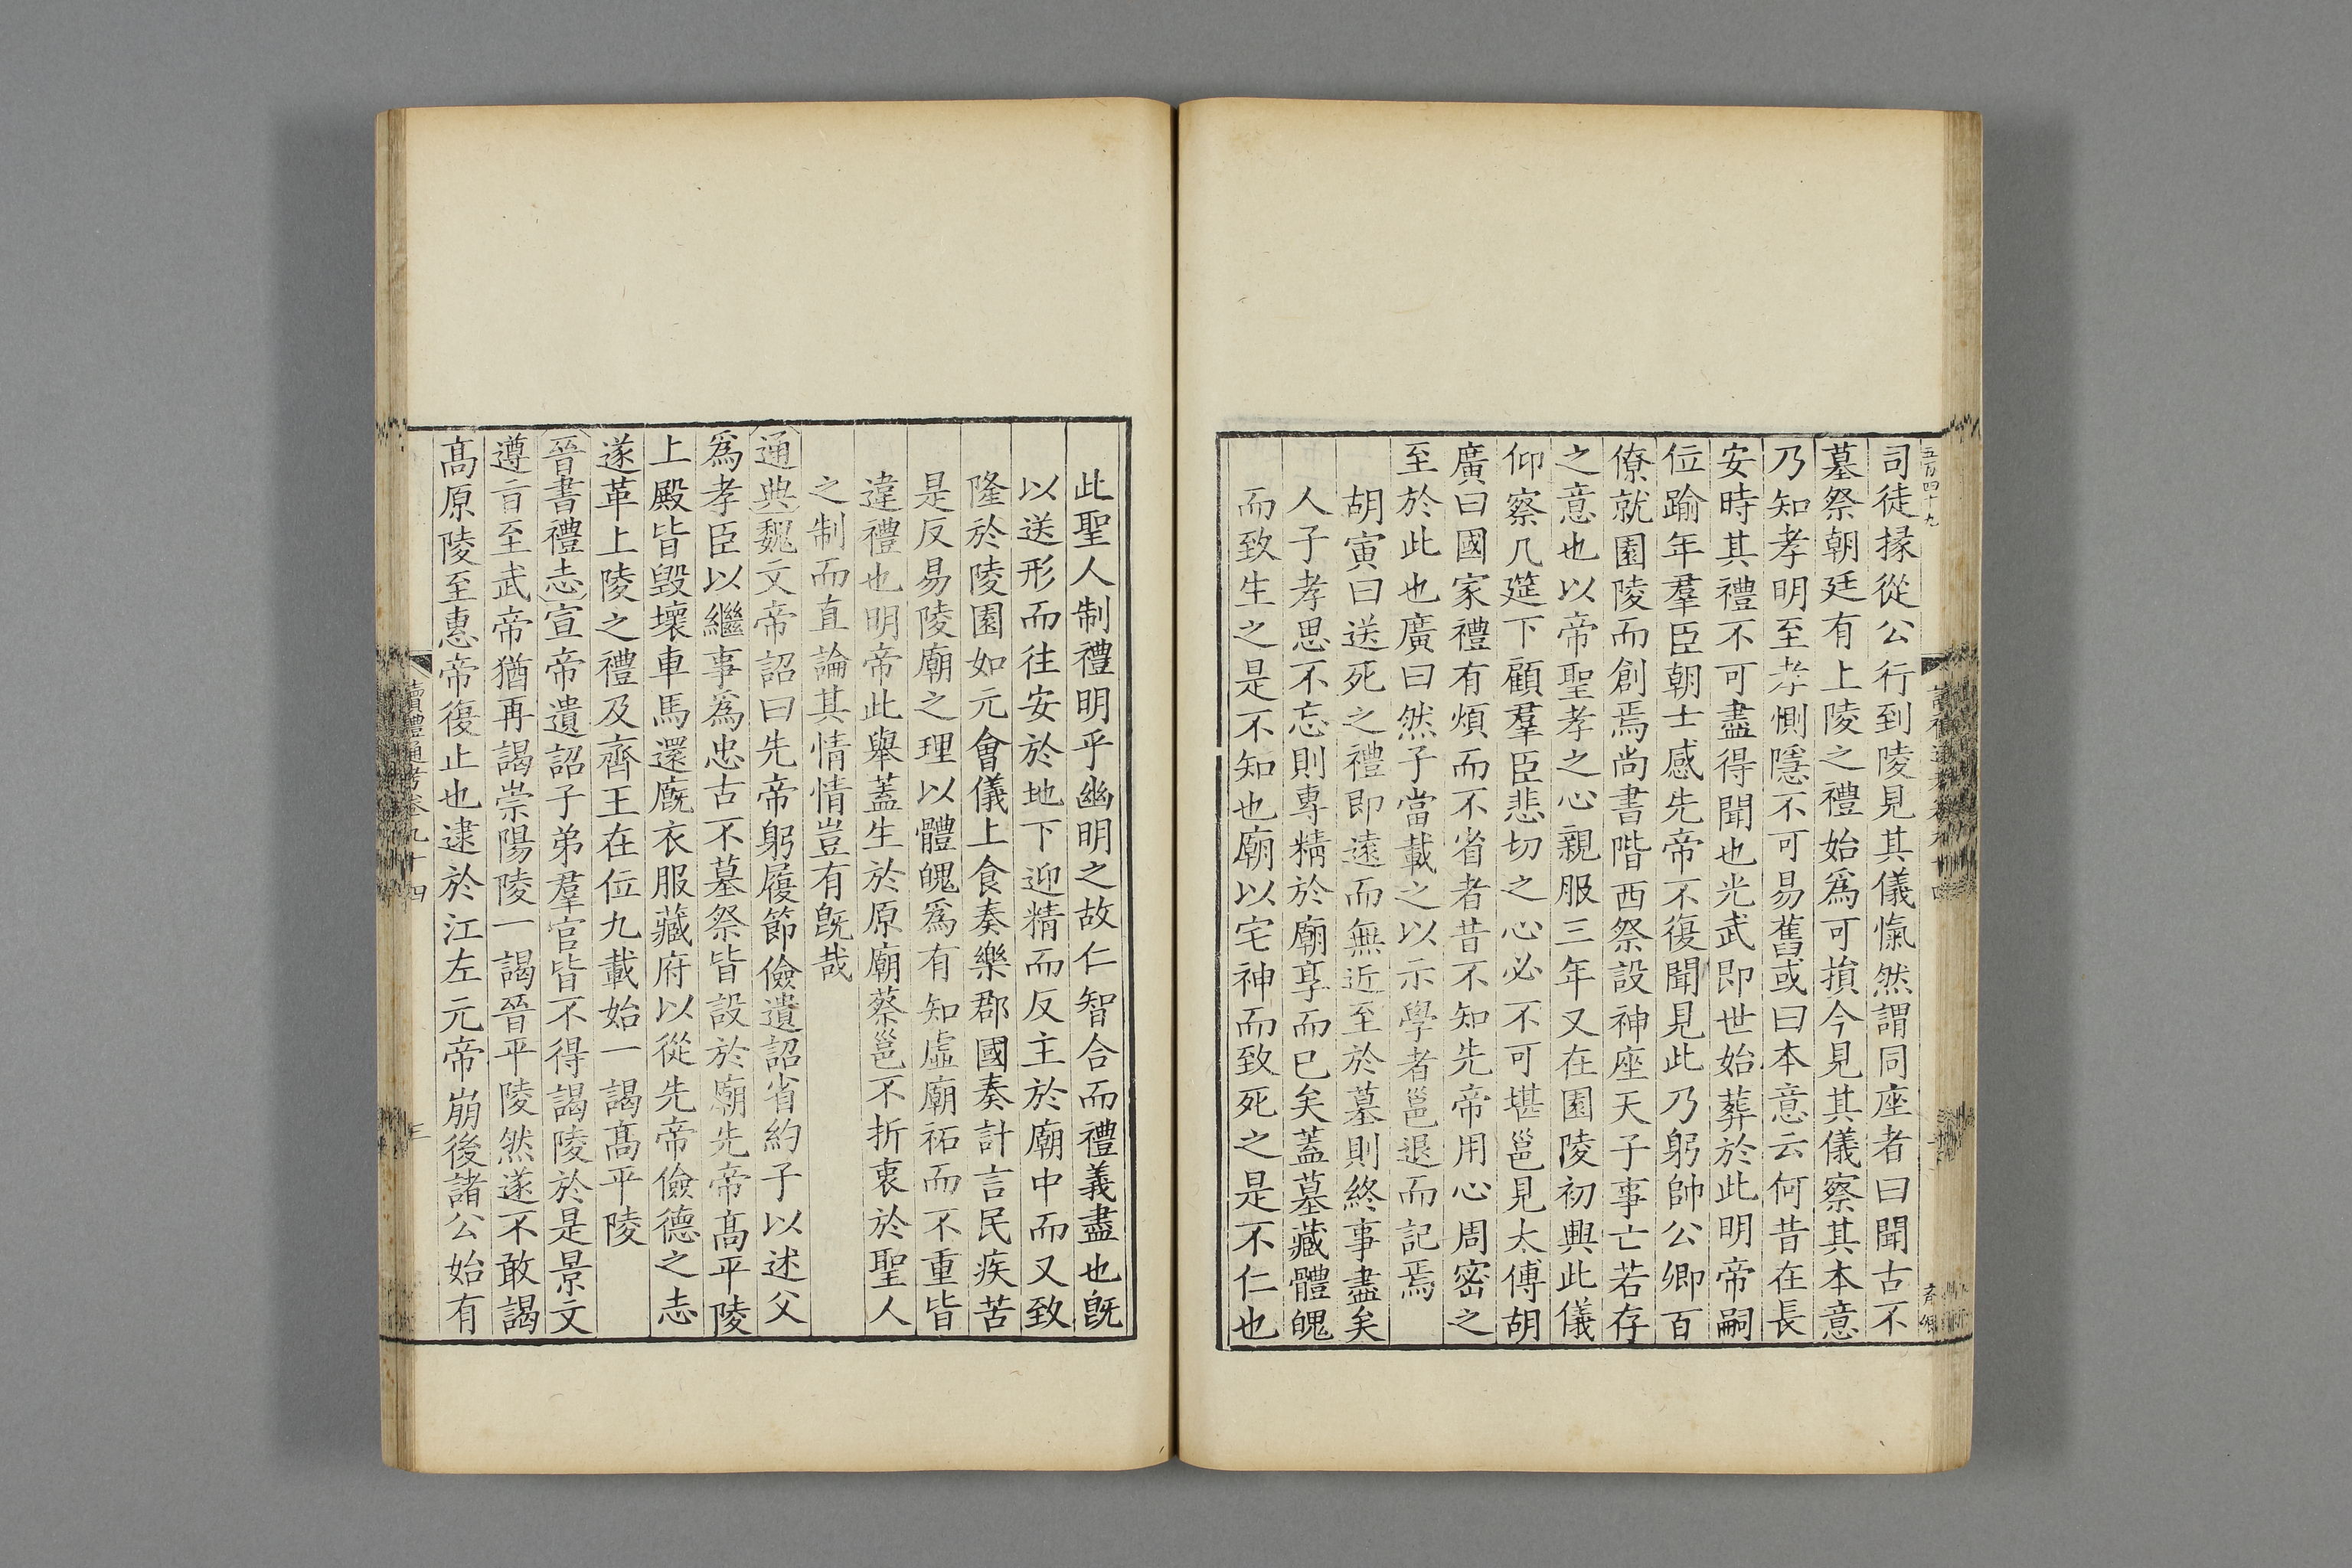 五百四十九
司徒掾從公行到陵見其儀愾然謂同座者曰聞古不
墓祭朝廷有上陵之禮始爲可損今見其儀察其本意
乃知孝明至孝惻隱不可易舊或曰本意云何昔在長
安時其禮不可盡得聞也光武即世始葬於此明帝嗣
位踰年羣臣朝士感先帝不復聞見此乃躬帥公卿百
僚就園陵而創焉尚書階西祭設神座天子事亡若存
之意也以帝聖孝之心親服三年又在園陵初興此儀
仰察几筵下顧羣臣悲切之心必不可堪邕見太傅胡
廣曰國家禮有煩而不省者昔不知先帝用心周密之
至於此也廣曰然子當載之以示學者邕退而記焉
胡寅曰送死之禮即遠而無近至於墓則終事盡矣
人子孝思不忘則專精於廟享而已矣蓋墓藏體魄
而致生之是不知也廟以宅神而致死之是不仁也
此聖人制禮明乎幽明之故仁智合而禮義盡也旣
以送形而往安於地下迎精而反主於廟中而又致
隆於陵園如元會儀上食奏樂郡國奏計言民疾苦
是反易陵廟之理以體魄爲有知虛廟祏而不重皆
違禮也明帝此舉蓋生於原廟蔡邕不折衷於聖人
之制而直論其情情豈有旣哉
通典魏文帝詔曰先帝躬履節儉遺詔省約子以述父
爲孝臣以繼事爲忠古不墓祭皆設於廟先帝高平陵
上殿皆毀壞車馬還廐衣服藏府以從先帝儉德之志
遂革上陵之禮及齊王在位九載始一謁高平陵
晉書禮志宣帝遺詔子弟羣官皆不得謁陵於是景文
遵旨至武帝猶再謁崇陽陵一謁晉平陵然遂不敢謁
高原陵至惠帝復止也逮於江左元帝崩後諸公始有
讀禮通考卷九十四
三